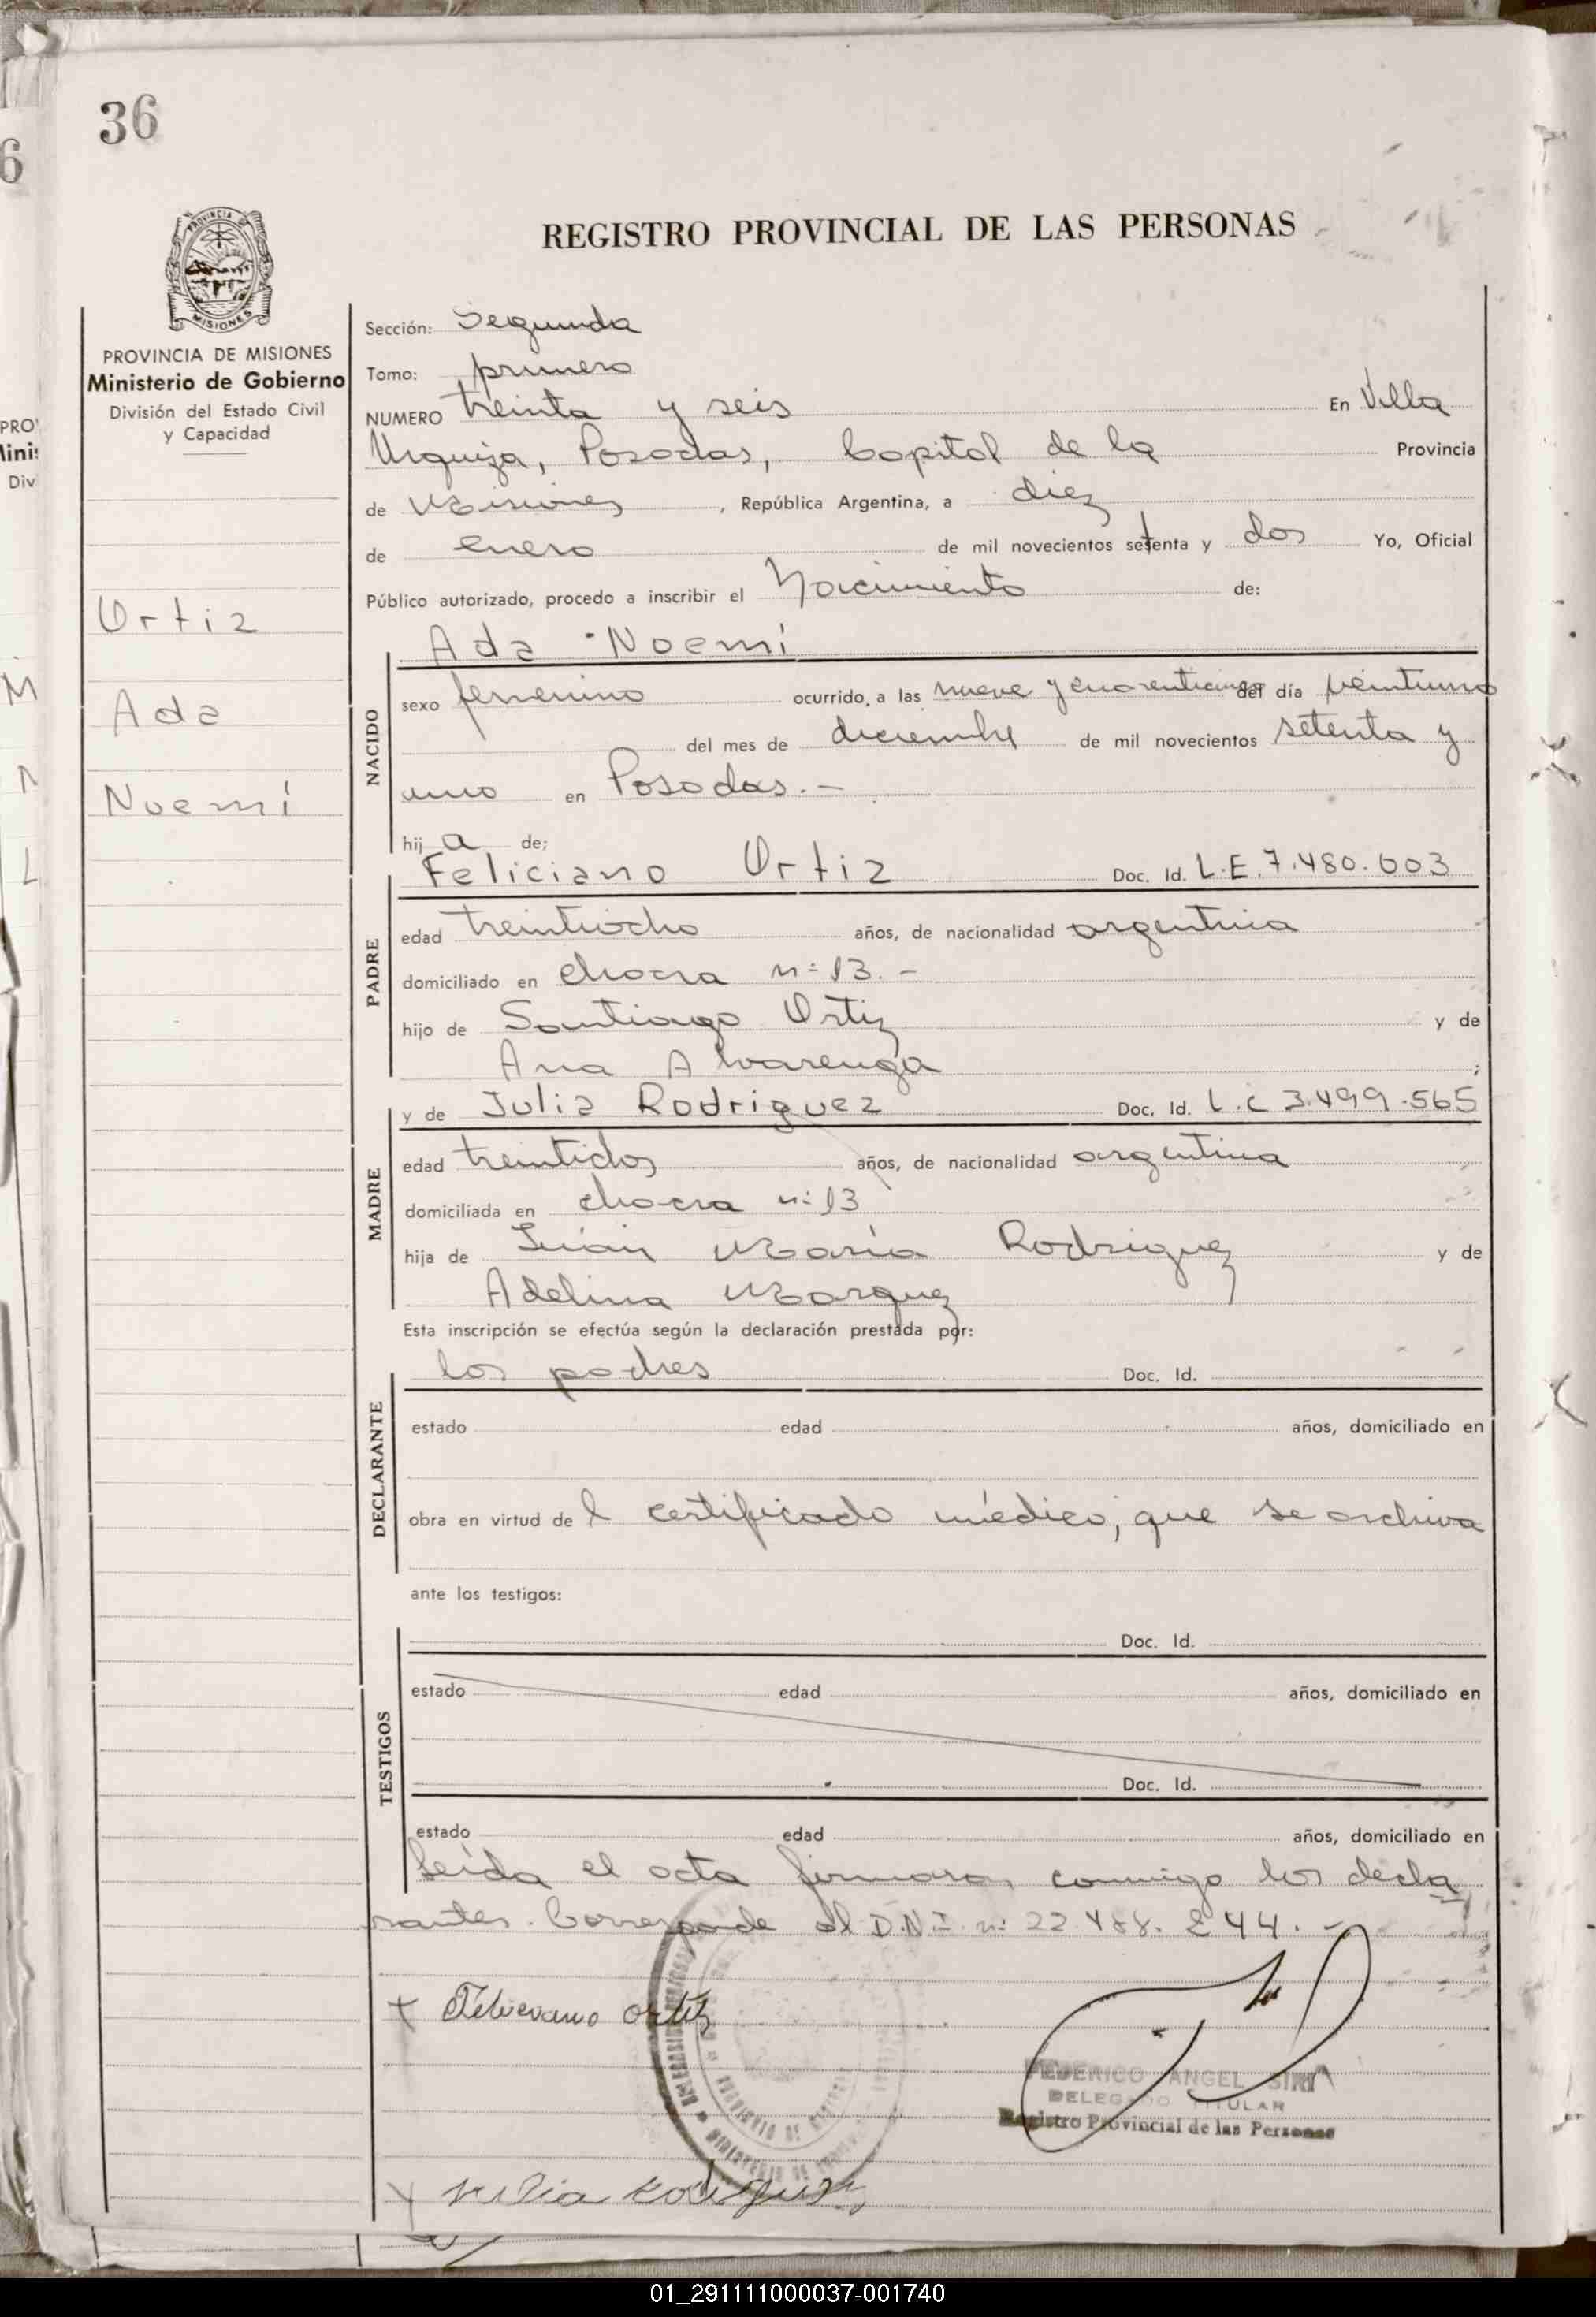 36
6
REGISTRO PROVINCIAL DE LAS PERSONAS
PROVINCIA
MISIONES
PROVINCIA DE MISIONES
Ministerio de Gobierno
División del Estado Civil
y Capacidad
Ortiz
Ada
Noemí
Sección: Segunda
Tomo: primero
NUMERO treinta y seis En Villa
Urquiza, Posadas, Capital de la Provincia
de Misiones, República Argentina, a diez
de enero de mil novecientos setenta y dos Yo, Oficial
Público autorizado, procedo a inscribir el Nacimiento de:
Ada Noemí
NACIDO
sexo femenino ocurrido, a las nueve y cuarenticinco del día veintiuno
del mes de diciembre de mil novecientos setenta y
uno en Posadas.-
hij a de;
Feliciano Ortiz Doc. Id. L.E. 7.480.003
PADRE
edad treintiocho años, de nacionalidad argentina
domiciliado en chacra nº 13.-
hijo de Santiago Ortiz y de
Ana Alvarenga ;
y de Julia Rodriguez Doc. Id. L.C 3.499.565
MADRE
edad treintidos años, de nacionalidad argentina
domiciliada en chacra nº 13
hija de Juan María Rodriguez y de
Adelina Marquez
Esta inscripción se efectúa según la declaración prestada por:
los padres Doc. Id.
DECLARANTE
estado edad años, domiciliado en
obra en virtud de l certificado médico, que se archiva
ante los testigos:
Doc. Id.
TESTIGOS
estado edad años, domiciliado en
Doc. Id.
estado edad años, domiciliado en
Leída el acta firmaron conmigo los decla
rantes. Corresponde al D.N.I. nº
+ Ortiz
FEDERICO ANGEL
DELEGADO TITULAR
Registro Provincial de las Personas
Julia Rodriguez
01_291111000037-001740